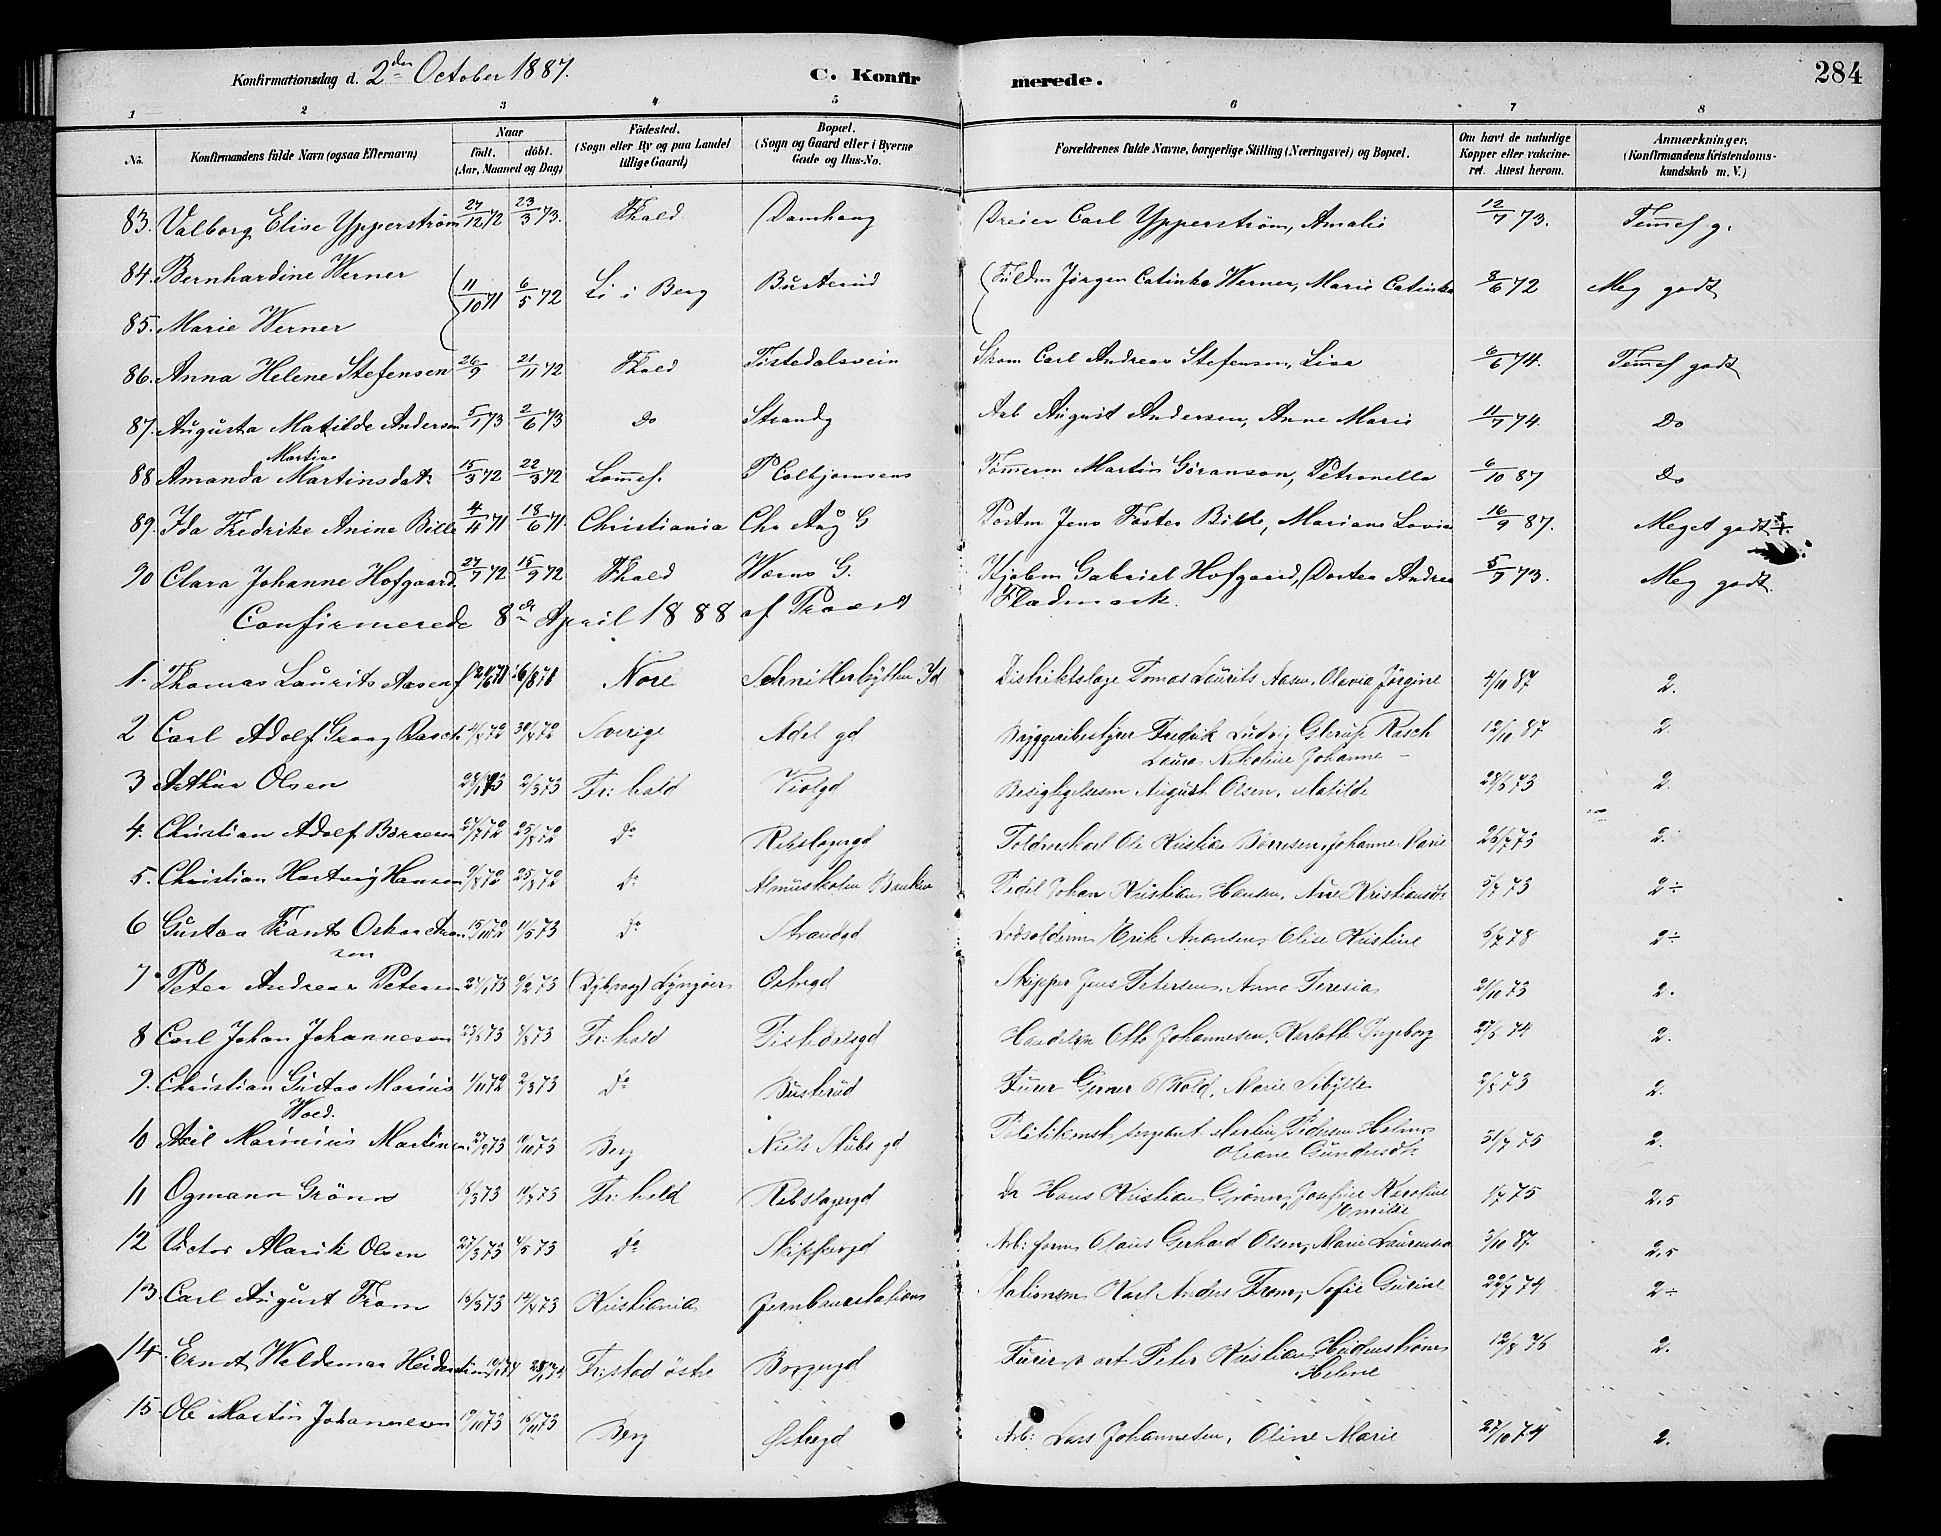 Konfirmationsdag d. 2den October 1887. C. Konfirmerede. 284
1 2 3 4 5 6 7 8
No. Konfirmandens fulde Navn (ogsaa Efternavn) Naar født. døbt. (Aar, Maaned og Dag) Födested. (Sogn eller By og paa Landet tillige Gaard) Bopæl. (Sogn og Gaard eller i Byerne Gade og Hus-No. Forældrenes fulde Navne, borgerlige Stilling (Næringsvei) og Bopæl. Om havt de naturlige Kopper eller vakcineret. Attest herom. Anmærkninger. (Konfirmandens Kristendomskundskab m. V.)
83. Valborg Elise Ypperström 27/12 72 23/3 73. Fhald Damhaug Dreier Carl Ypperström, Amalie 12/7 73. Temel g.
84. Bernhardine Werner 11/10 71 6/5 72 Li i Berg Busterud Jörgen Catinka Werner, Marie Catinka 8/6 72 Meg godt
85. Marie Werner
86. Anna Helene Stefensen 26/9 21/11 72 Fhald Tistedalsvein Skom Carl Andreas Stefensen, Lisa 6/6 74. Temel godt
87. Augusta Matilde Andersen 5/1 73 2/6 73 Do Strandg Arb August Andersen, Anne Marie 11/7 74. Do
88 Amanda Martine Martinsdatr 15/3 72 22/3 72 P Colbjørnsens Tömerm Martin Göranson, Petronella 6/10 87 Do
89. Ida Fredrike Anine Bille 4/4 71 18/6 71. Christiania Chr Aug G Portm Jens Foster Bille, Mariane Lovise 16/9 87. Meget godt
90 Clara Johanne Hofgaard. 27/7 72 15/9 72 Fhald Wærns G. Kjøbm Gabriel Hofgaard, Dortea Andrea Fladmark. 5/7 73. Meg godt
Confirmerede 8de April 1888 af Provst
1. Thomas Laurits Aasen 16/8 71 Nore Schnitlerbytten Id Distriktslæge Tomas Laurits Aasen, Olavia Jörgine 4/10 87 2.
2 Carl Adolf Rasch 30/4 72 Sverige Adel gd Bryggeribestyrer Fredrik Ludvig Glerup Rasch Laura Nikoline Johanne 12/10 87 2.
3 Arthur Olsen 2/3 73 Fr: hald Violgd Besigtigelsesm August Olsen, Matilde 28/6 73 2.
4. Christian Adolf Børresen 25/8 72 Do Rebslagergd Ole Kristian Börresen, Johanne Marie 26/7 73 2.
5. Christian Hartvig Hansen 25/8 72 Do Almueskolen Banken Pedel Johan Kristian Hansen, Ane Kristiansdtr 5/7 73 2÷
6 Gustav Frants Oskar Aronson 15/10 72 1/5 73 Do Strandgd Lodsolderm Erik Aronsen, Elise Kristine 5/7 78 2÷
7. Peter Andreas Petersen 24/1 73 9/2 73 (Dybvåg) Lyngöer Ostregd Skipper Jens Petersen, Anna Teresia 21/10 73 2.
8 Carl Johan Johannesen 23/5 73 3/8 73 Fr: hald Tiskaresgd Handelsm Otto Johannesen, Karlotte Ingeborg 27/6 74 2.
9. Christian Gustav Marius Wold. 1/11 72 2/3 73 Do Busterud Furer Gerner Wold, Marie Sibylle 2/8 73 2.
10 Axel Marinius Martinsen 27/7 73 Berg Niels Stubs gd Politikonst. sergeant Martin Pedersen Holm, Oleane Gundersdtr 31/7 75 2.
11 Ogmann Grönn 18/3 73 14/4 73 Fr: hald Rebslagergd Dr Hans Kristian Grönn, Josefine Karoline Emilie 1/7 75 2,5
12 Victor Alarik Olsen 27/3 73 4/5 73 Do Skippergd Arb: form. Olaus Gerhard Olsen, Marie Laurensa 3/10 87. 2,5
13. Carl August From 15/3 73 Kristiania Jernbanestationen Stationsm Karl Anders From, Sofie Gurine 22/7 74 2÷
14. Ernst Waldemar Fr: stad östre Borgergd Furer v art Peter Kristian Helene 12/8 76 2.
15. Ole Martin Johannesen 19/10 73 16/11 73 Berg Østregd Arb: Lars Johannesen, Oline Marie 27/10 74 2.